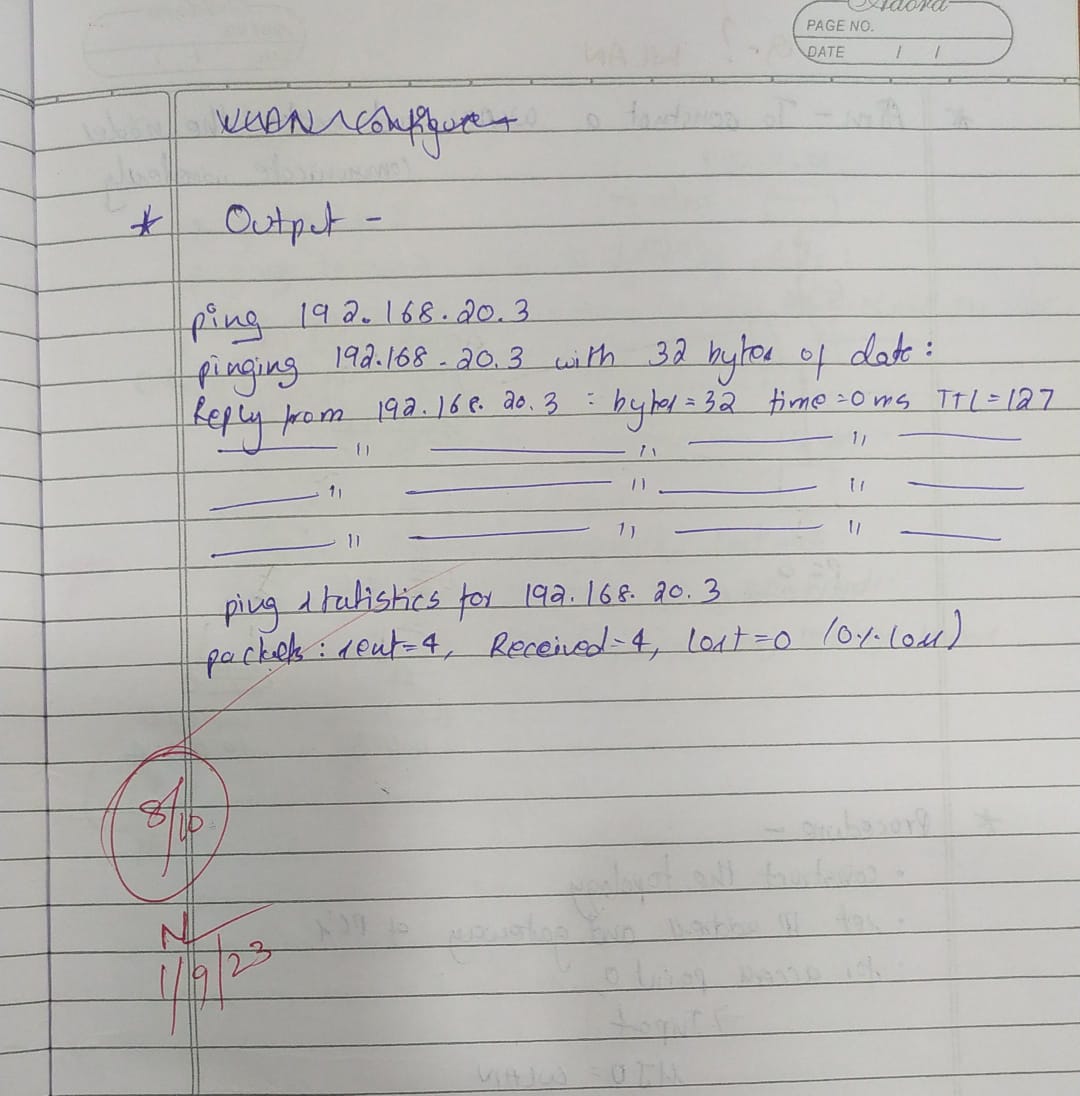 Adora
PAGE NO.
DATE / /
* Output -
ping 192.168.20.3
pinging 192.168.20.3 with 32 bytes of data:
Reply from 192.168.20.3 : bytes=32 time=0ms TTL=127
—— 11 —— 11 —— 11 ——
—— 11 —— 11 —— 11 ——
—— 11 —— 11 —— 11 ——
ping statistics for 192.168.20.3
packets: sent=4, Received=4, lost=0 (0% loss)
8/10
1/9/23